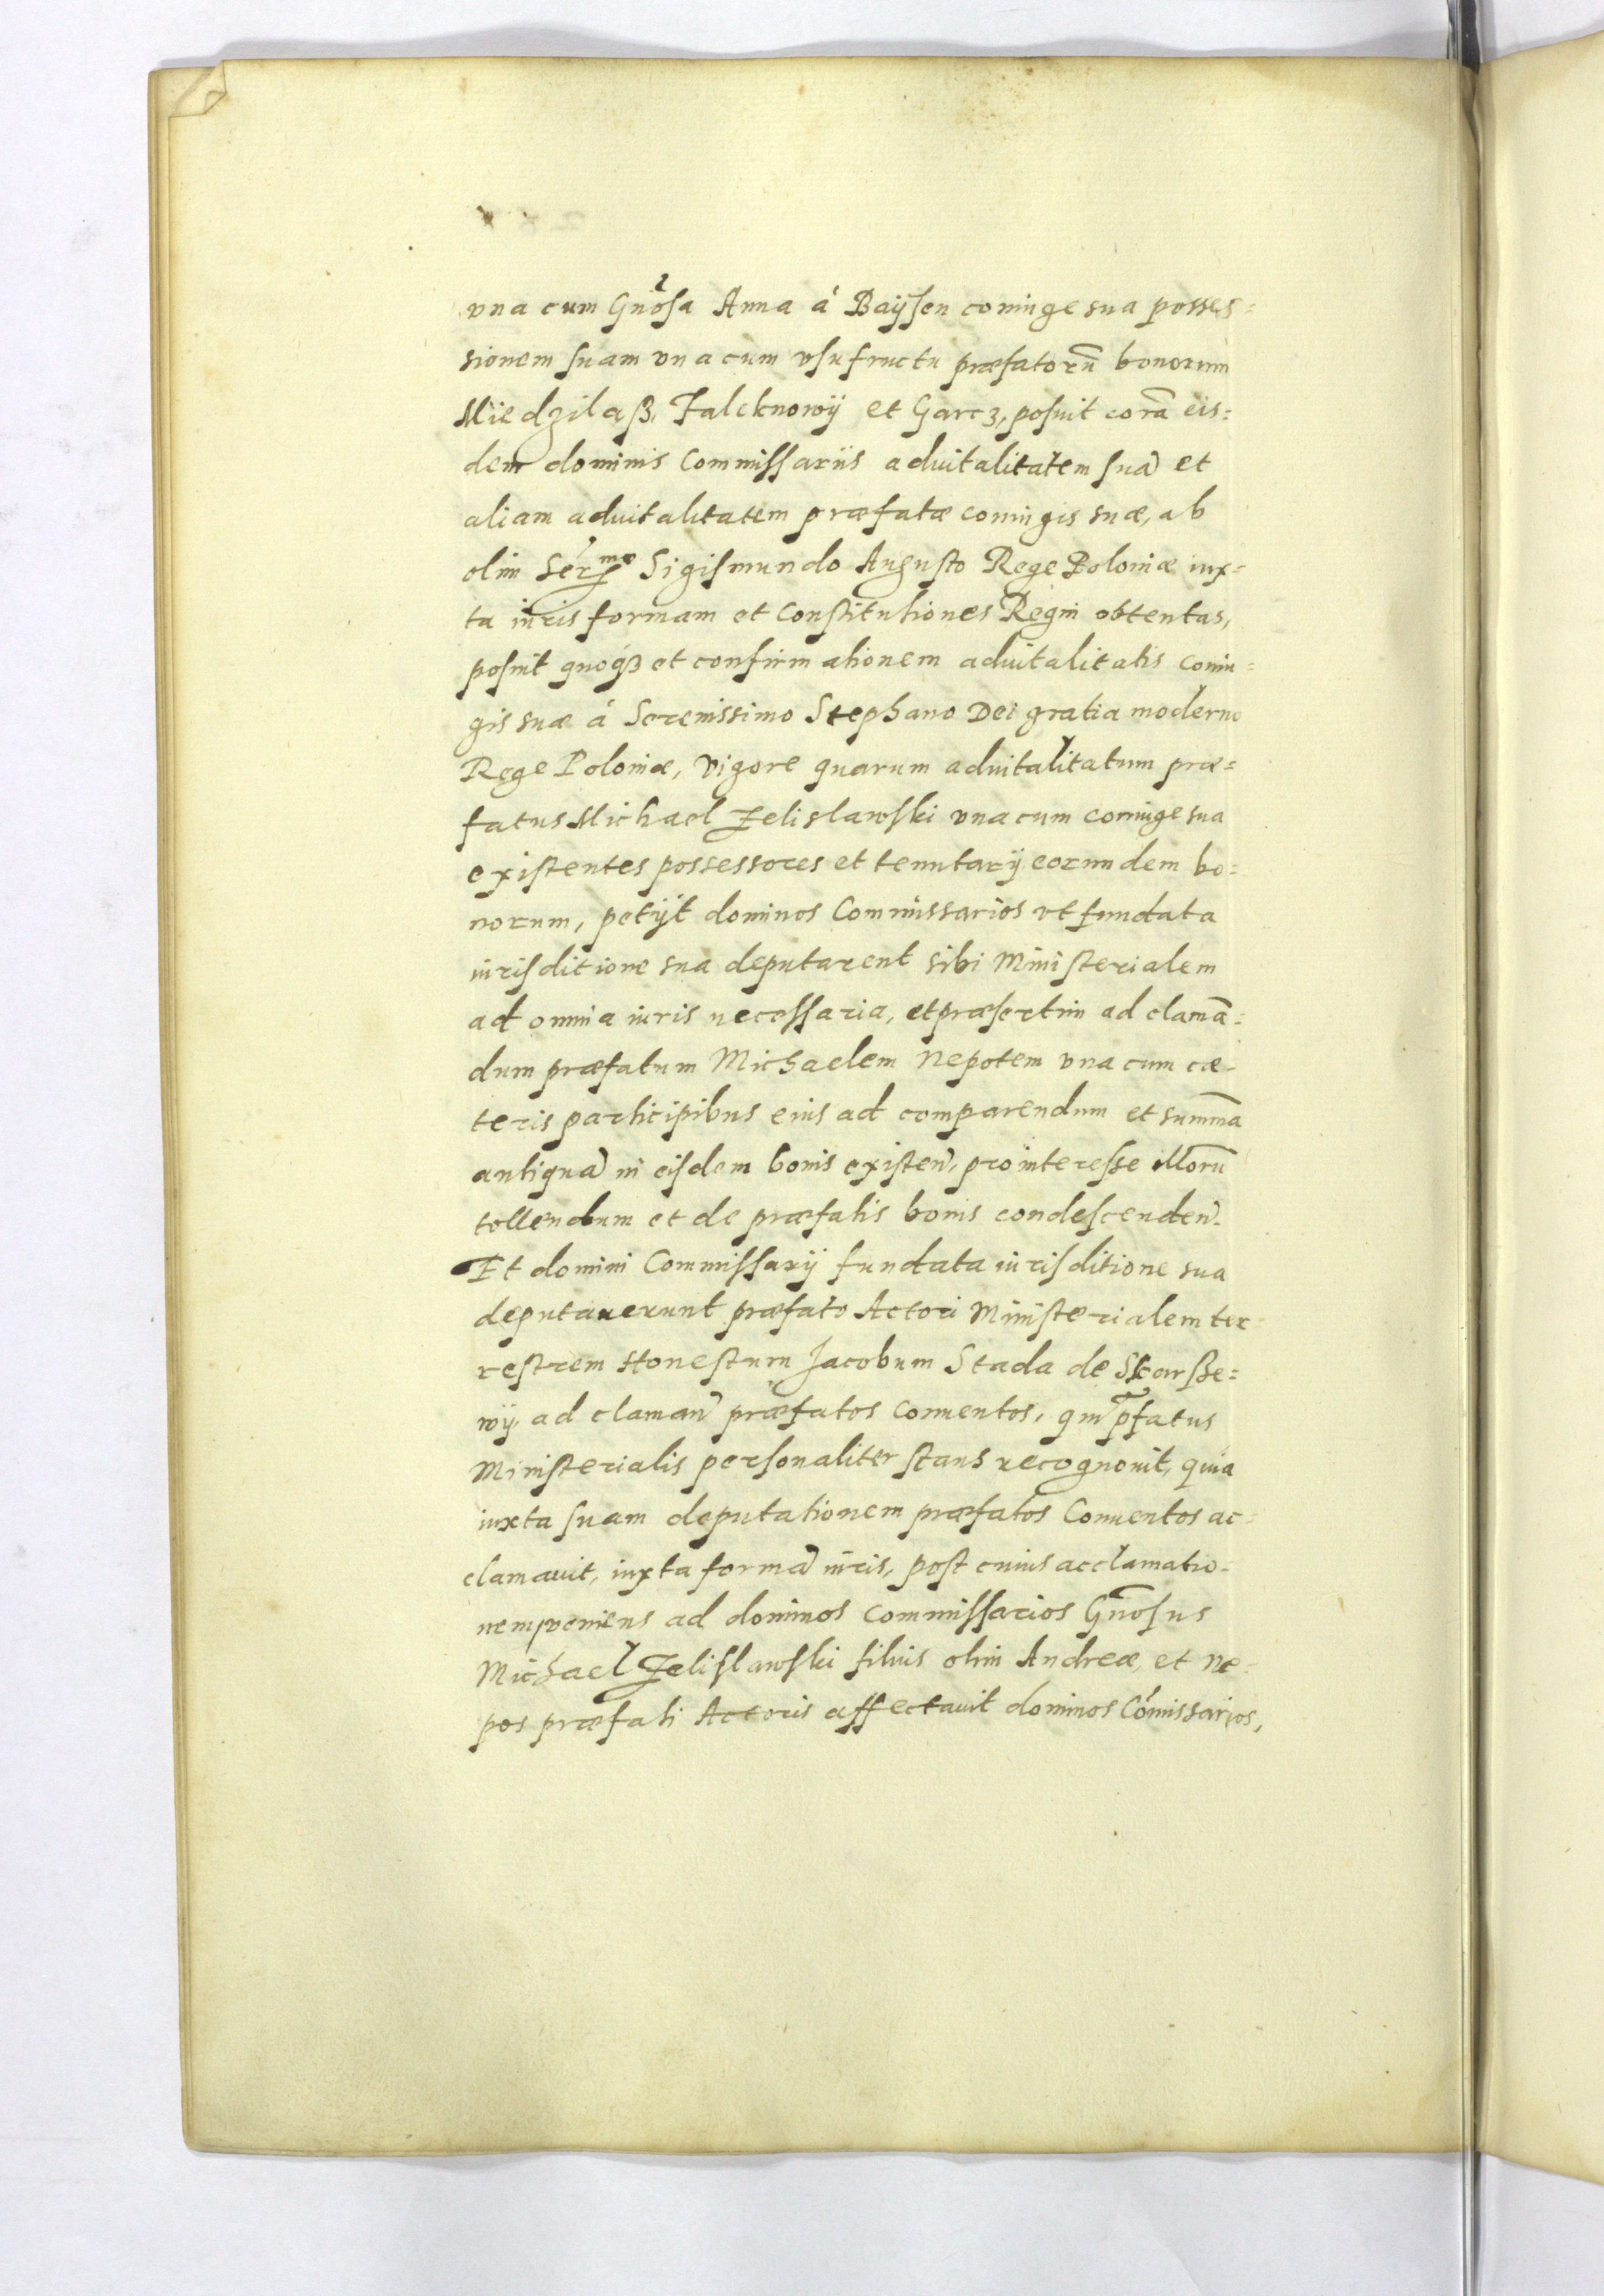 vna cum Gnosa Anna á Baÿsen coniuge sua posses=
sionem suam vna cum vsufructu præfatorū bonorum
Miedzilaß, Falcknowÿ et Garcz, posuit corā eis=
dem dominis Commissariis aduitalitatem suā et
aliam aduitalitatem præfatæ coniugis suæ, ab
olim Serᵐᵒ Sigismundo Augusto Rege Poloniæ iux=
ta iuris formam et Constitutiones Regni obtentas,
posuit quoqȝ et confirmationem aduitalitatis coniu=
gis suæ á Serenissimo Stephano Dei gratia moderno
Rege Poloniæ, vigore quarum aduitalitatum præ=
fatus Michael Zelislawski vna cum coniuge sua
existentes possessores et tenutarÿ eorundem bo=
norum, petÿt dominos Commissarios vt fundata
iurisditione sua deputarent sibi Ministerialem
ad omnia iuris necessaria, et præsertim ad clamā=
dum præfatum Michaelem Nepotem vna cum cæ=
teris participibus eius ad comparendum et summā
antiquā in eisdem bonis existen̄, pro interesse illorū
tollendum et de præfatis bonis condescenden̄.
Et domini Commissarÿ fundata iurisditione sua
deputauerunt præfato Actori Ministerialem ter=
restrem Honestum Jacobum Stada de Skarsze=
wÿ, ad claman̄ præfatos conuentos, qui p̄fatus
Ministerialis personaliter stans recognouit, quia
iuxta suam deputationem præfatos Conuentos ac=
clamauit, iuxta formā iuris, post cuius acclamatio=
nem veniens ad dominos Commissarios Gnosus
Michael Zelislawski filius olim Andreæ, et Ne=
pos præfati Actoris affectauit dominos Cōmissarios,